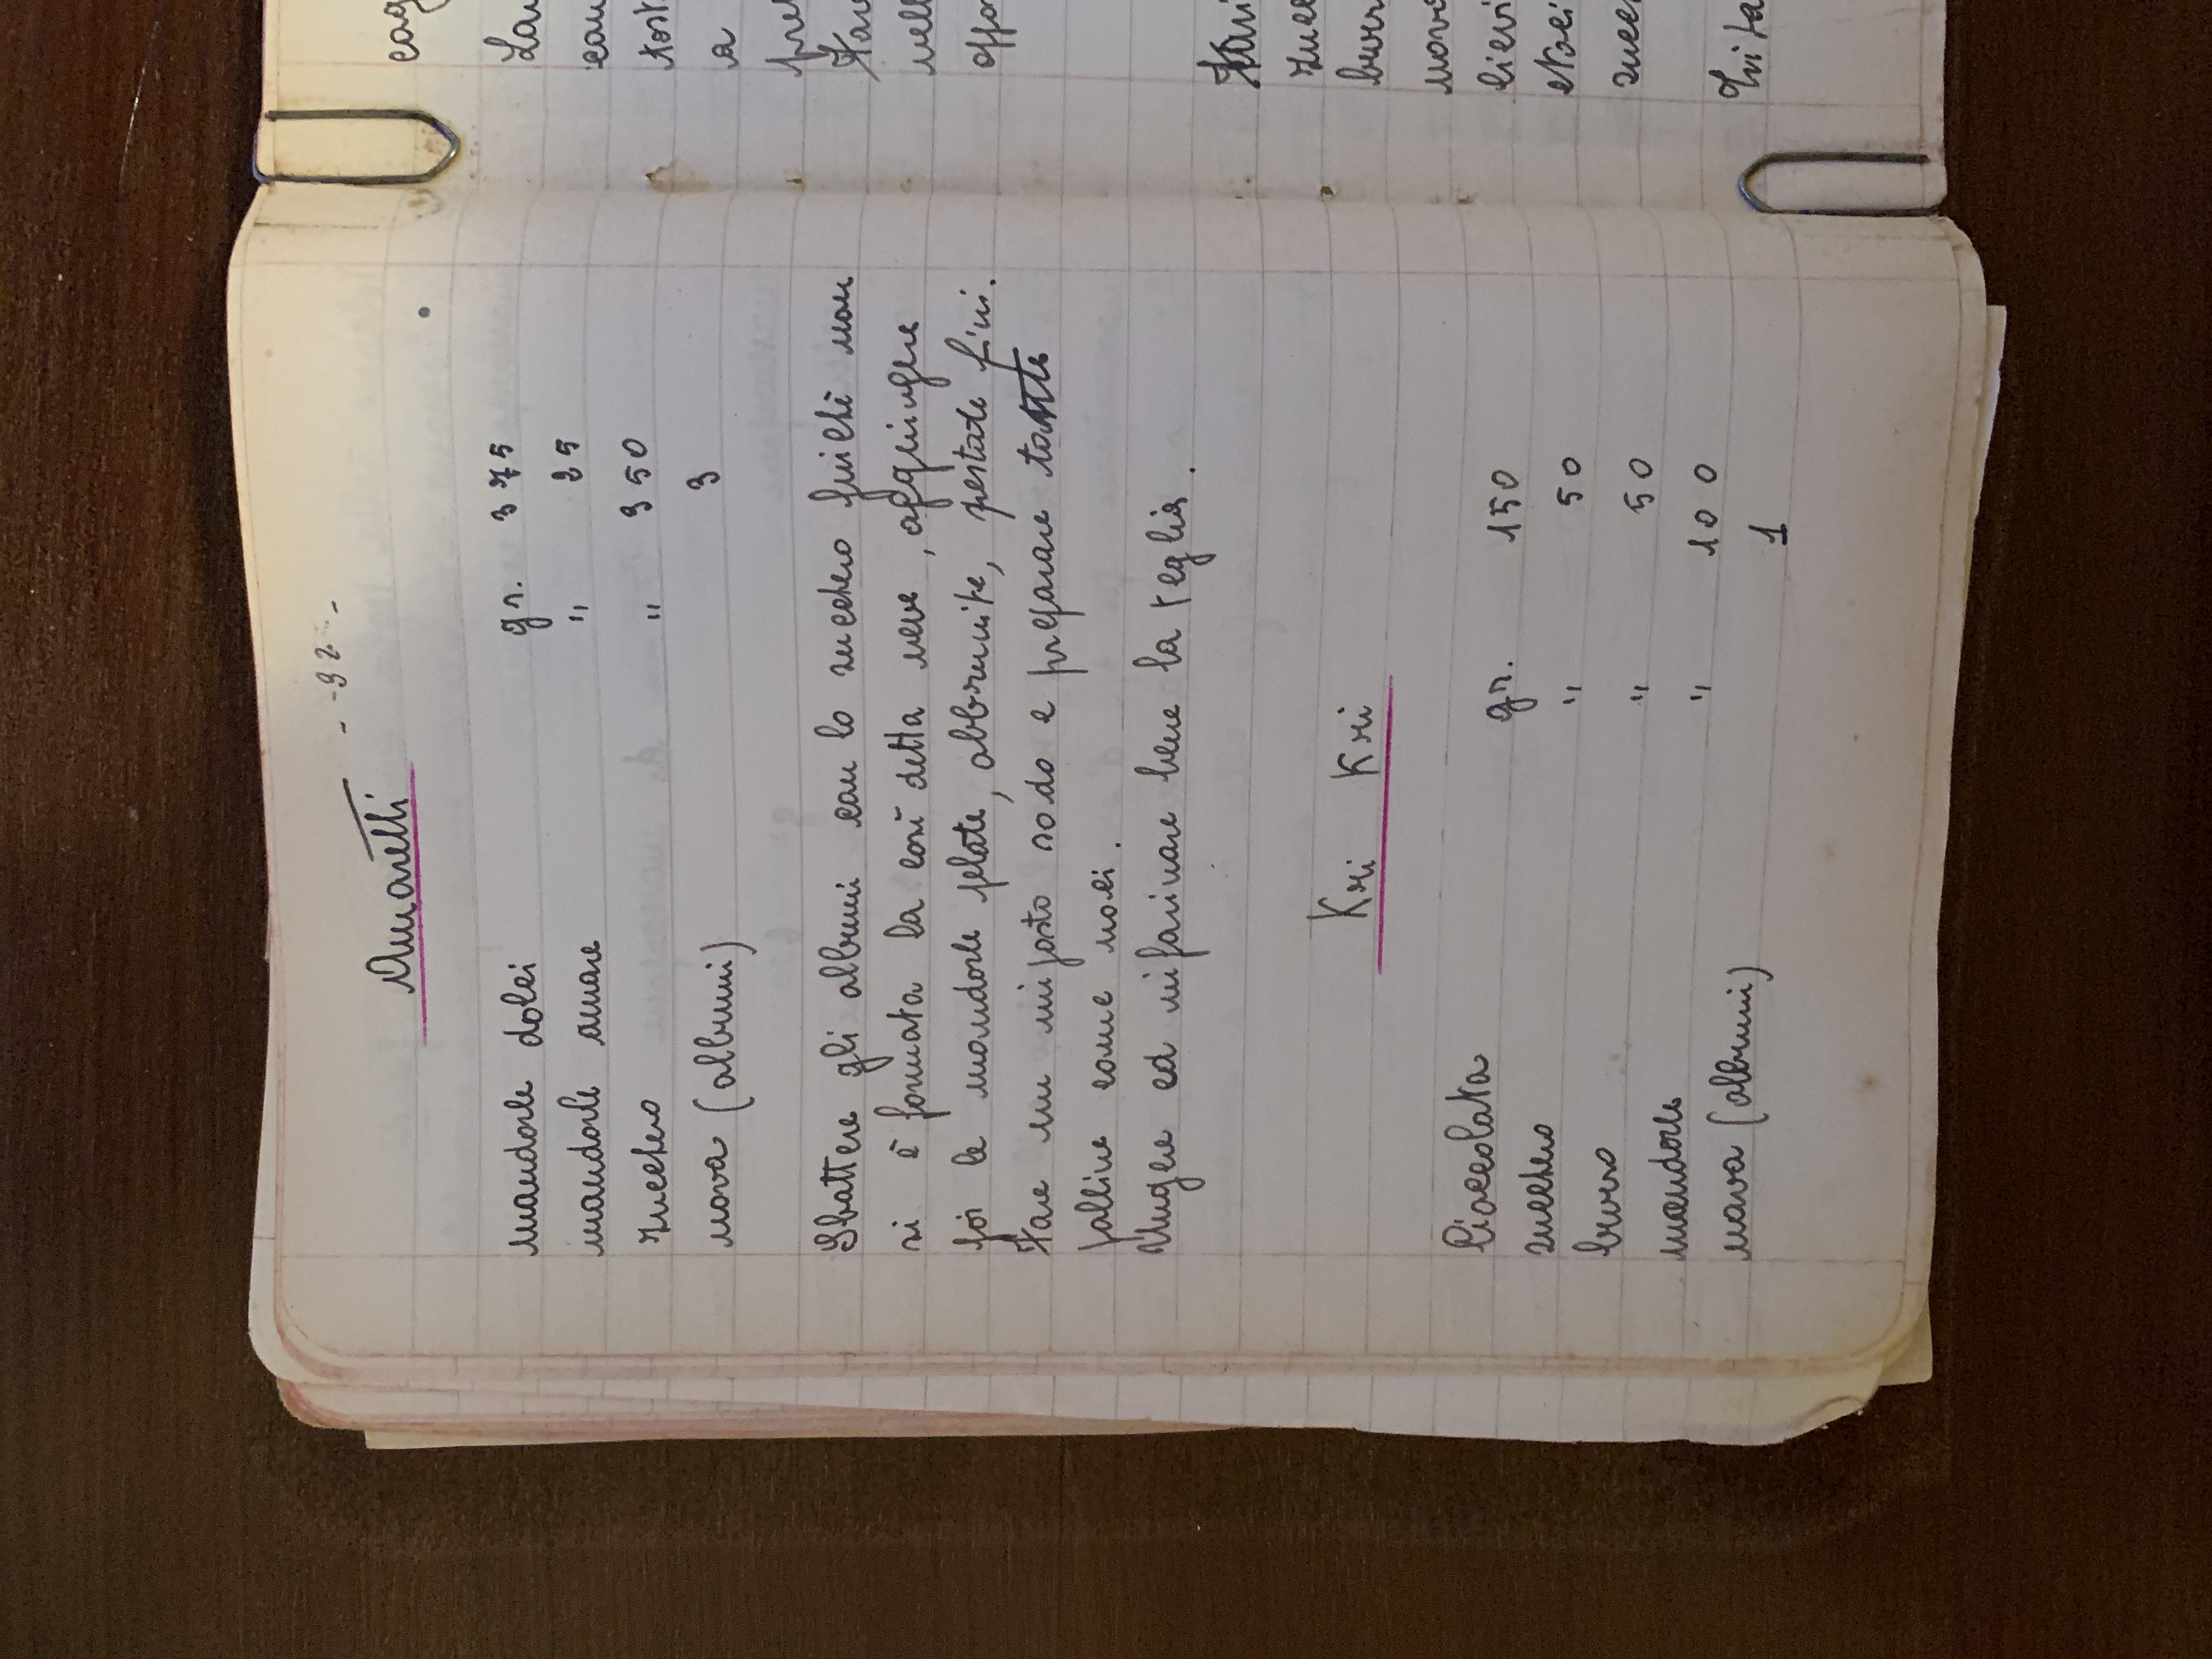 - -92- -
Amaretti
mandorle dolci gr. 375
mandorle amare " 25
zucchero " 350
uova (albumi) 3
Sbattere gli albumi con lo zucchero finchè non
si è formata la così detta neve, aggiungere
poi le mandorle pelate, abbrunite, pestate fini.
Fare un miposto sodo e preparare tante
palline come noci.
Ungere ed infarinare bene la teglia.
Kri Kri
Cioccolata gr. 150
zucchero " 50
burro " 50
mandorle " 100
uova (albumi) 1